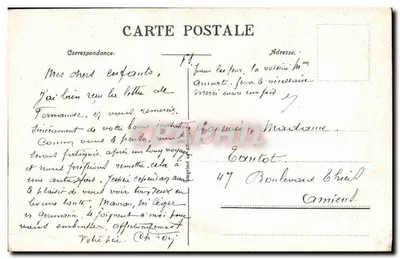 CARTE POSTALE
Correspondance.
Adresse.
Mes chers enfants,
J'ai bien reçu la lettre de
Fernande, et vous remercie
sincèrement de votre bonne invitation
Comme vous le parlez, nous
serons fatigués après un long voyage
et nous préférons remettre cela à
une autre fois. J'espère cependant avoir
le plaisir de vous voir tous deux en
bonne santé. Maman,
et Germaine se joignent à moi pour
vous embrasser affectueusement
Votre père.
Tous les jours, la voisine Mme
fera le nécessaire
Merci encore une fois
Monsieur, Madame
Tantot
47 Boulevard Thiel
Amiens